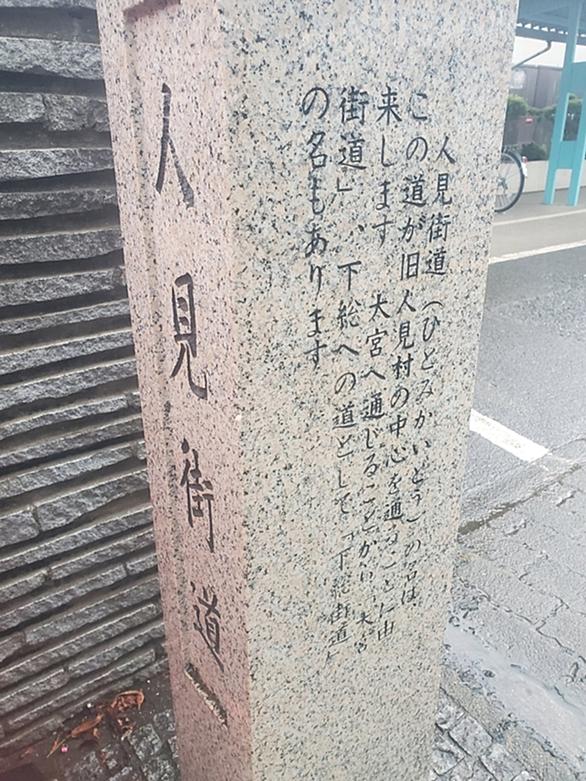 人見街道
人見街道(ひとみかいどう)の名は、
この道が旧人見村の中心を通ることに由
来します 大宮へ通じることから「大宮
街道」、下総への道として「下総街道」
の名もあります